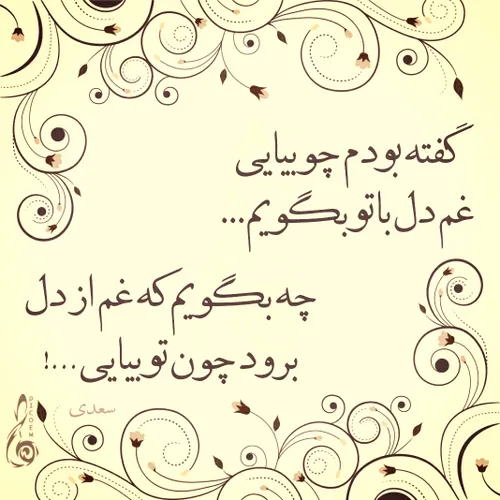 گفته بودم چو بیایی
غم دل با تو بگویم...
چه بگویم که غم از دل
برود چون تو بیایی...!
سعدی
PICOEM